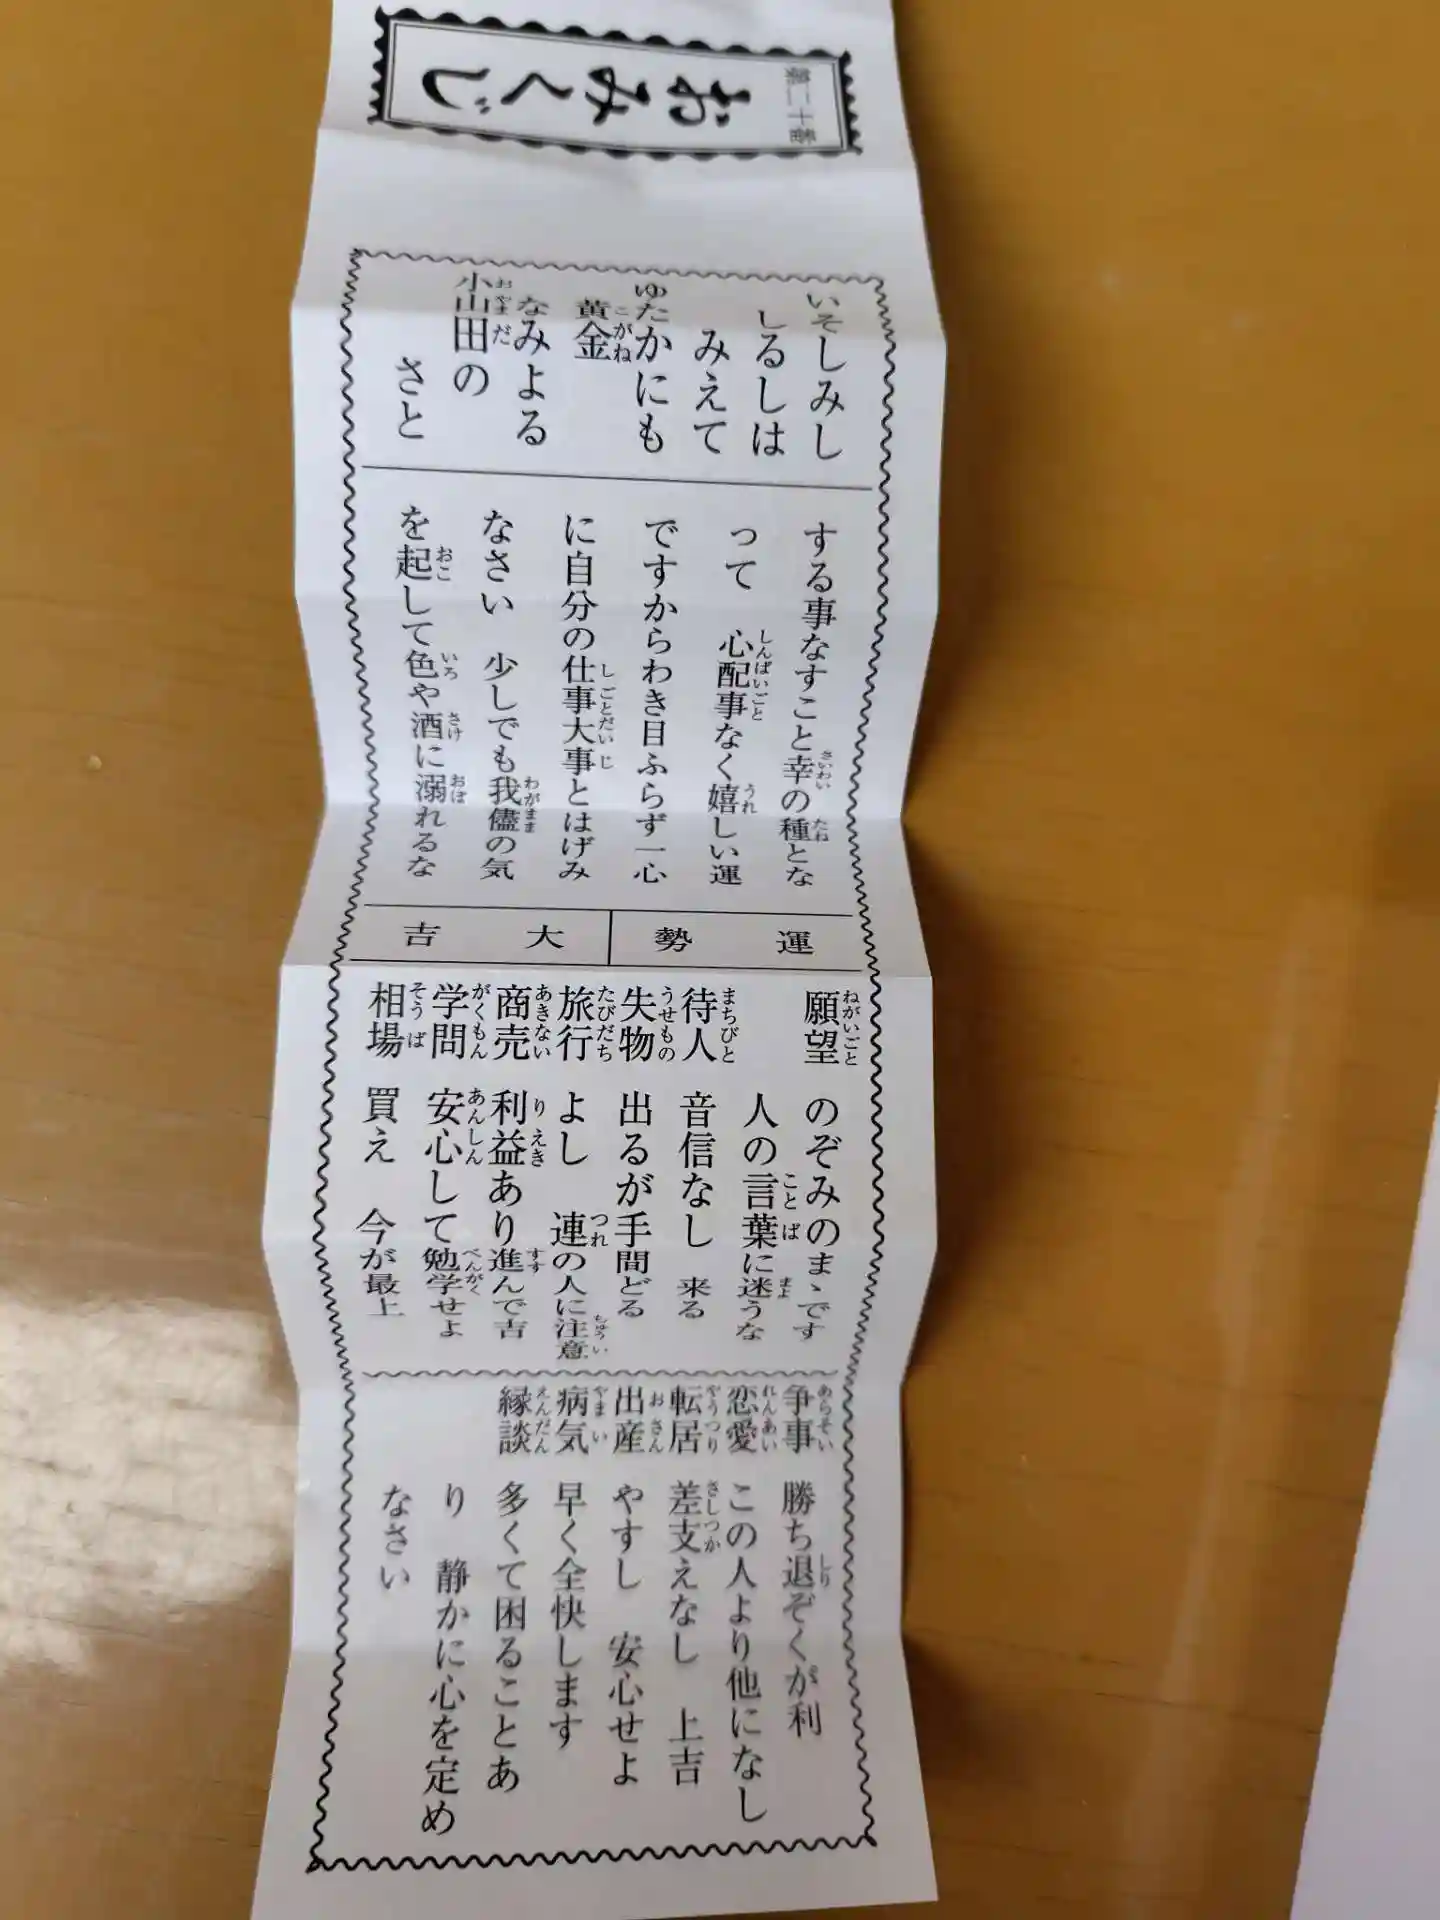 第二十番
おみくじ
いそしみし
しるしは
みえて
ゆたかにも
黄金
なみよる
小山田の
さと
する事なすこと幸の種とな
って 心配事なく嬉しい運
ですからわき目ふらず一心
に自分の仕事大事とはげみ
なさい 少しでも我儘の気
を起して色や酒に溺れるな
運勢 大吉
願望 のぞみのまゝです
人の言葉に迷うな
待人 音信なし 来る
失物 出るが手間どる
旅行 よし 連の人に注意
商売 利益あり進んで吉
学問 安心して勉学せよ
相場 買え 今が最上
争事 勝ち退ぞくが利
恋愛 この人より他になし
転居 差支えなし 上吉
出産 やすし 安心せよ
病気 早く全快します
縁談 多くて困ることあ
り 静かに心を定め
なさい